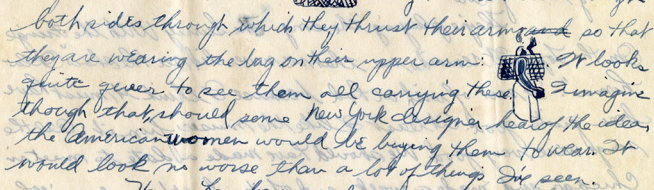 both sides through which they thrust their arms and so that
they are wearing the bag on their upper arm: It looks
quite queer to see them all carrying these. I imagine
though that, should some New York designer hear of the idea,
the American women would be buying them to wear. It
would look no worse than a lot of things I've seen.